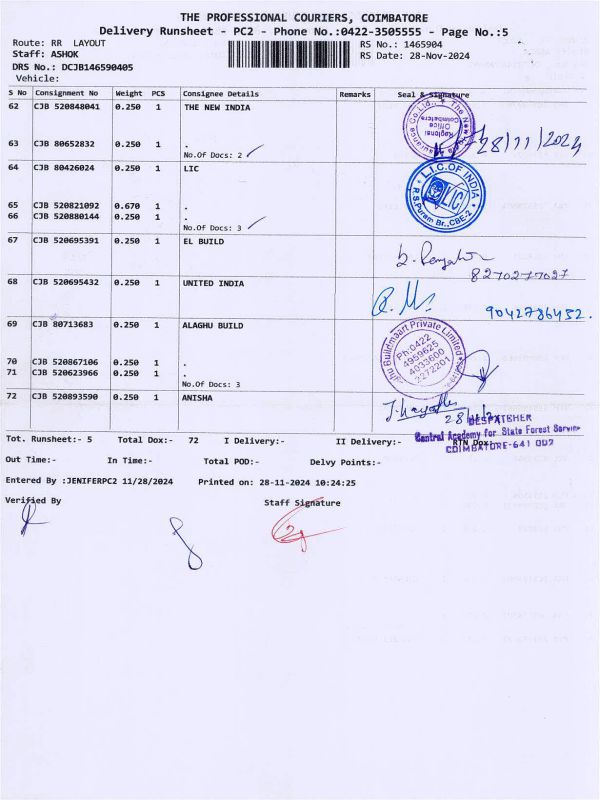 THE PROFESSIONAL COURIERS, COIMBATORE
Delivery Runsheet - PC2 - Phone No.:0422-3505555 - Page No.:5
Route: RR LAYOUT
RS No.: 1465904
Staff: ASHOK
RS Date: 28-Nov-2024
DRS No.: DCJB146590405
Vehicle:
S No Consignment No Weight PCS Consignee Details Remarks Seal & Signature
62 CJB 520848041 0.250 1 THE NEW INDIA
The New
Co.Ltd.,
Regional
Office
Coimbatore
28/11/2024
63 CJB 80652832 0.250 1 .
No.Of Docs: 2
64 CJB 80426024 0.250 1 LIC
L.I.C.OF INDIA
LIC
R.S.Puram Br.,CBE-2
65 CJB 520821092 0.670 1 .
66 CJB 520880144 0.250 1 .
No.Of Docs: 3
67 CJB 520695391 0.250 1 EL BUILD
8270277027
68 CJB 520695432 0.250 1 UNITED INDIA
9042786452.
69 CJB 80713683 0.250 1 ALAGHU BUILD
Buildmaart Private Limited
Ph:0422
4959625
4033600
2272201
70 CJB 520867106 0.250 1 .
71 CJB 520623966 0.250 1 .
No.Of Docs: 3
72 CJB 520893590 0.250 1 ANISHA
DESPATCHER
Central Academy for State Forest Service
COIMBATORE-641 002
Tot. Runsheet:- 5 Total Dox:- 72 I Delivery:- II Delivery:- RTN Dox:-
Out Time:- In Time:- Total POD:- Delvy Points:-
Entered By :JENIFERPC2 11/28/2024 Printed on: 28-11-2024 10:24:25
Verified By Staff Signature